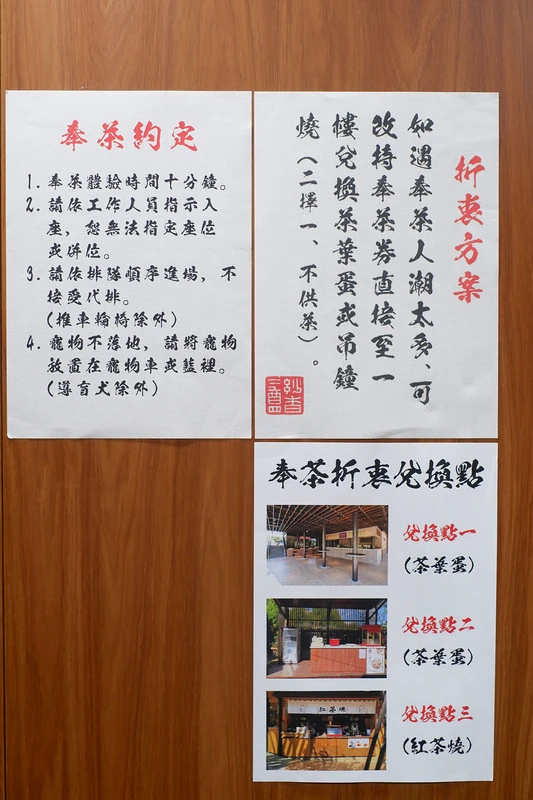 奉茶約定
1. 奉茶體驗時間十分鐘。
2. 請依工作人員指示入
座，恕無法指定座位
或併位。
3. 請依排隊順序進場，不
接受代排。
(推車輪椅除外)
4. 寵物不落地，請將寵物
放置在寵物車或籃裡。
(導盲犬除外)
折衷方案
如遇奉茶人潮太多、可
改持奉茶券直接至一
樓兌換茶葉蛋或吊鐘
燒（二擇一、不供茶）。
奉茶折衷兌換點
兌換點一
(茶葉蛋)
兌換點二
(茶葉蛋)
紅茶燒
兌換點三
(紅茶燒)